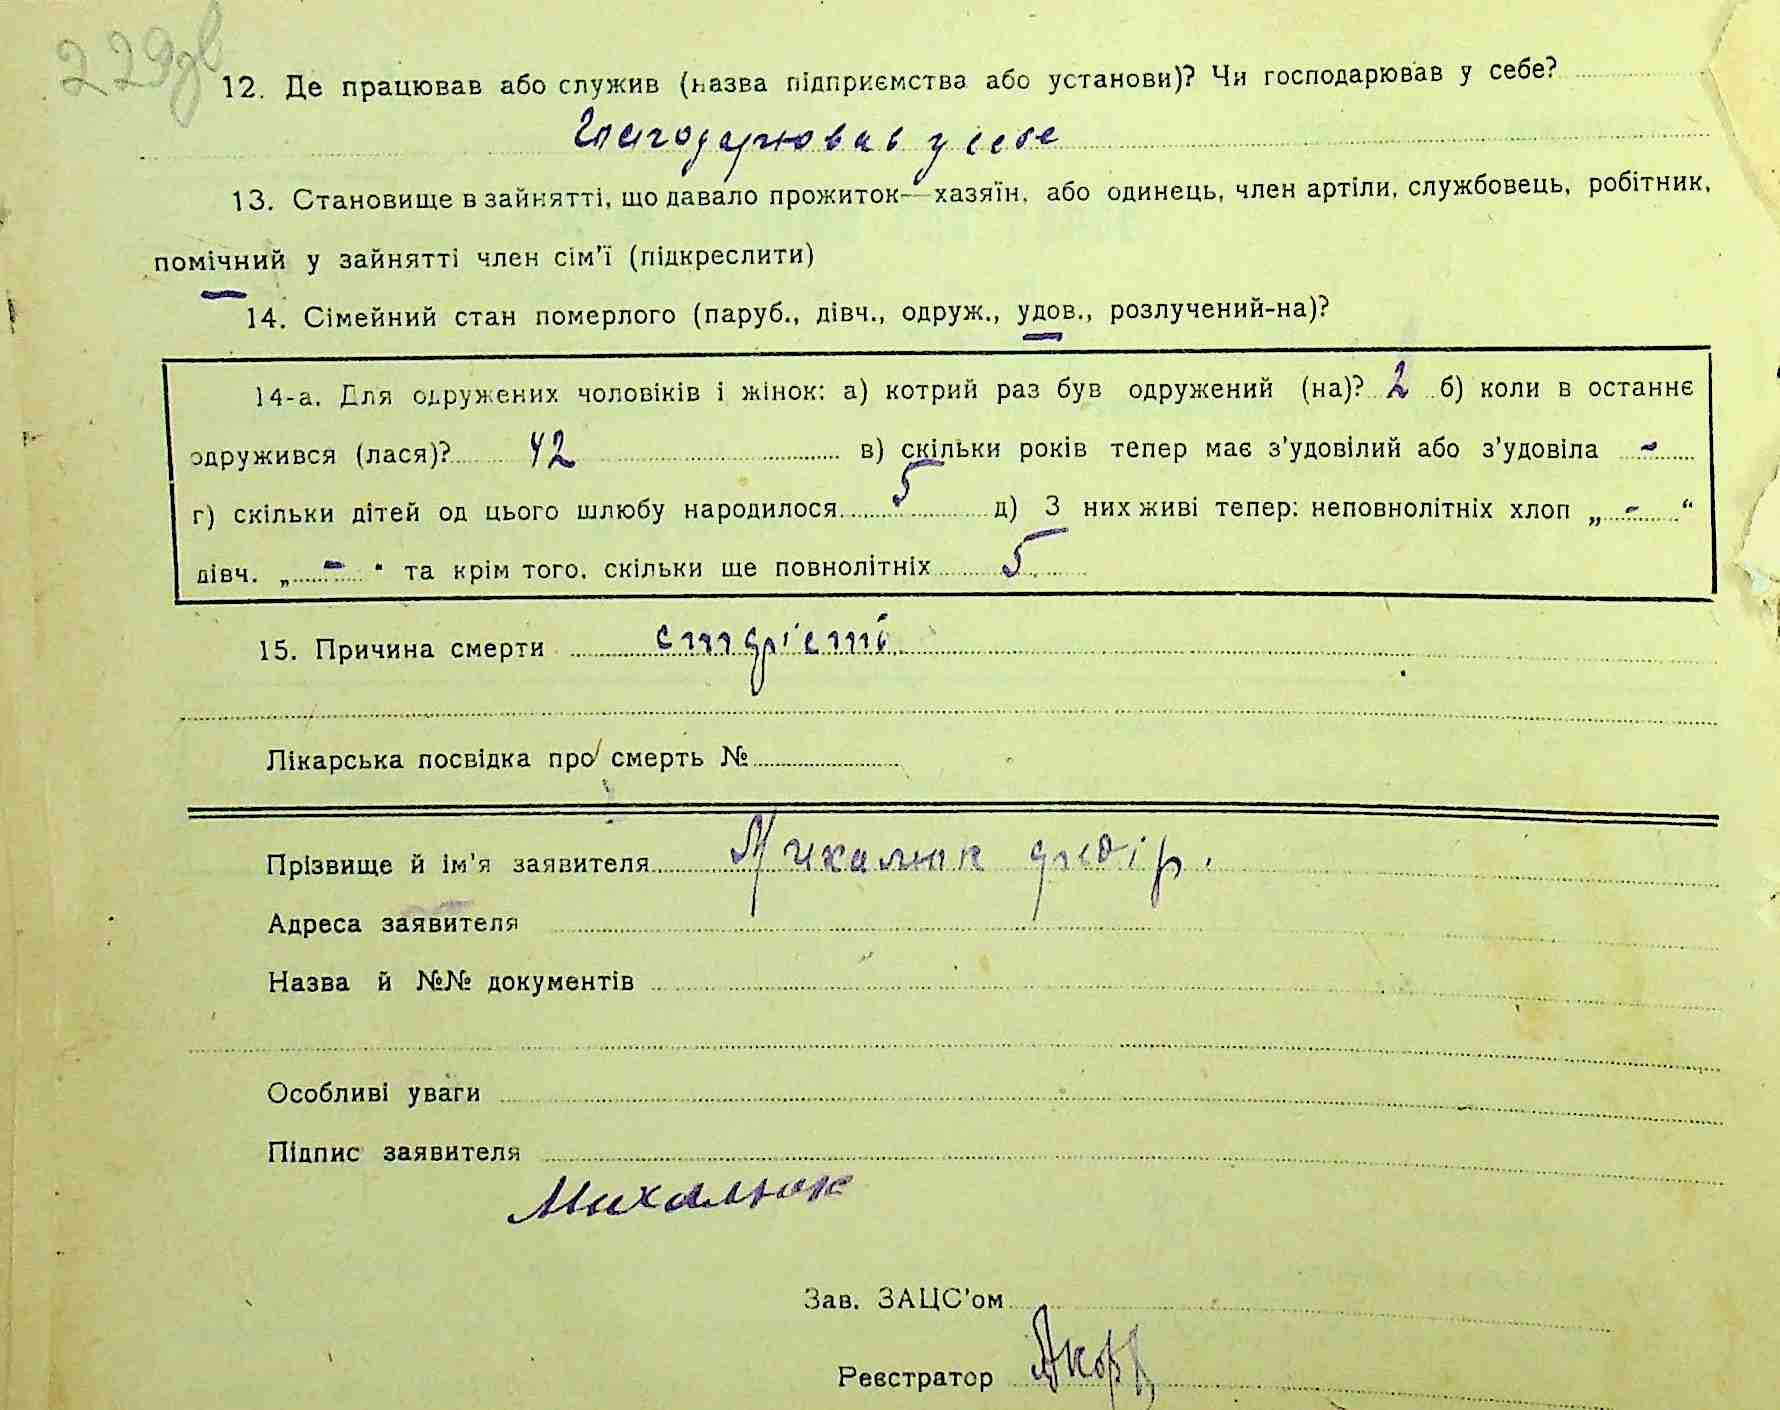 229зв
12. Де працював або служив (назва підприємства або установи)? Чи господарював у себе?
Господарював у себе
13. Становище в зайнятті, що давало прожиток—хазяїн, або одинець, член артіли, службовець, робітник,
помічний у зайнятті член сім'ї (підкреслити)
14. Сімейний стан померлого (паруб., дівч., одруж., удов., розлучений-на)?
14-а. Для одружених чоловіків і жінок: а) котрий раз був одружений (на)? 2 б) коли в останнє
одружився (лася)? 42 в) скільки років тепер має з'удовілий або з'удовіла -
г) скільки дітей од цього шлюбу народилося 5 д) З них живі тепер: неповнолітніх хлоп „ - “
дівч. „ - “ та крім того, скільки ще повнолітніх 5
15. Причина смерти старість
Лікарська посвідка про смерть №
Прізвище й ім'я заявителя Михалюк Федір.
Адреса заявителя
Назва й №№ документів
Особливі уваги
Підпис заявителя
Михалюк
Зав. ЗАЦС'ом
Реєстратор